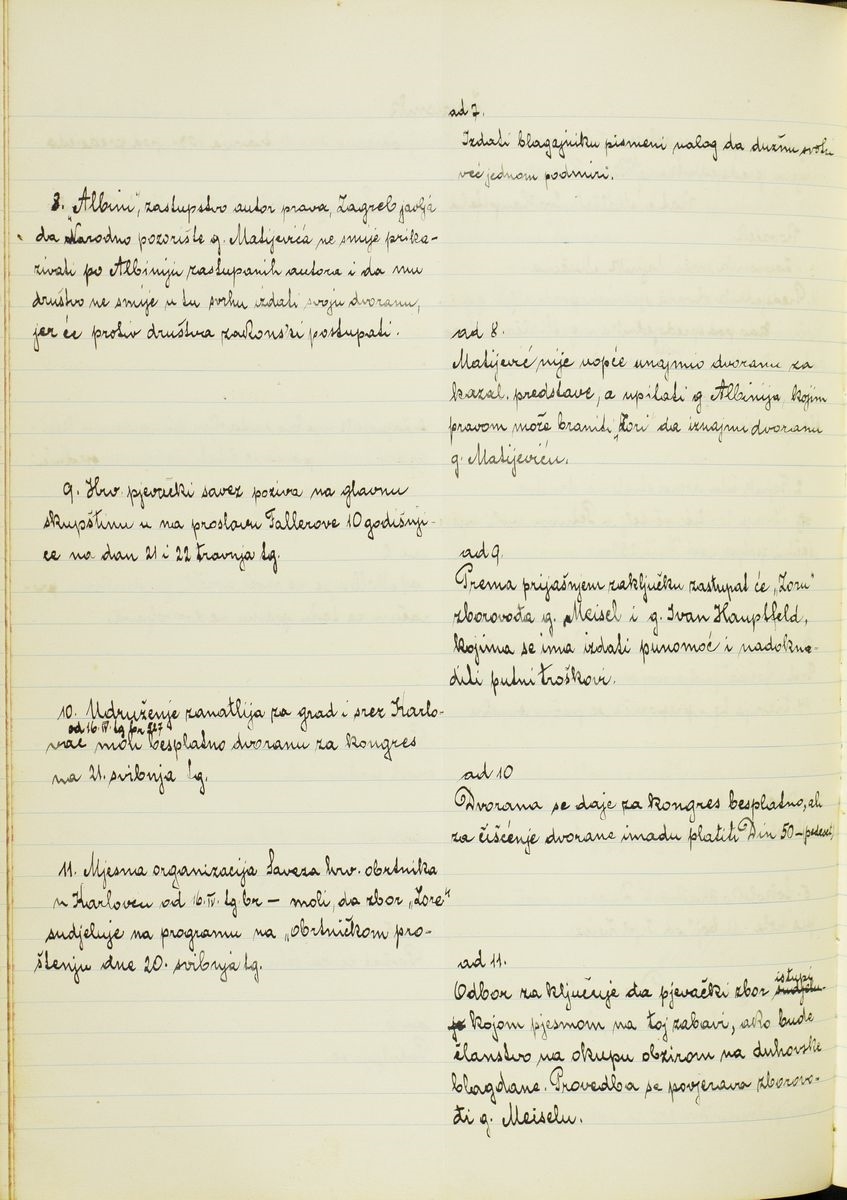 ad 7.
Izdati blagajniku pismeni nalog da dužnu svotu
već jednom podmiri.
8. "Albini", zastupstvo autor prava, Zagreb javlja
da Narodno pozorište g. Matijevića ne smije prika-
zivati po Albiniju zastupanih autora i da mu
društvo ne smije u tu svrhu izdati svoju dvoranu,
jer će protiv društva zakonski postupati.
ad 8.
Matijević nije uopće unajmio dvoranu za
kazal. predstave, a upitati g Albinija, kojim
pravom može braniti „Zori" da iznajmi dvoranu
g. Matijeviću.
9. Hrv. pjevački savez poziva na glavnu
skupštinu u na proslavu Fallerove 10 godišnji-
ce na dan 21 i 22 travnja t.g.
ad 9.
Prema prijašnjem zaključku zastupat će „Zoru"
zborovođa g. Meisel i g. Ivan Hauptfeld,
kojima se ima izdati punomoć i nadokna-
diti putni troškovi.
10. Udruženje zanatlija za grad i srez Karlo-
od 16. IV. t.g. br 527
vac moli besplatno dvoranu za kongres
na 21. svibnja t.g.
ad 10
Dvorana se daje za kongres besplatno, ali
za čišćenje dvorane imadu platiti Din 50 – pedeset)
11. Mjesna organizacija Saveza hrv. obrtnika
u Karlovcu od 16. IV. t.g. br — moli, da zbor „Zore"
sudjeluje na programu na „obrtničkom pro-
štenju dne 20. svibnja t.g.
ad 11.
Odbor zaključuje da pjevački zbor istupi sudjelu-
je kojom pjesmom na toj zabavi, ako bude
članstvo na okupu obzirom na duhovske
blagdane. Provedba se povjerava zborovo-
đi g. Meiselu.